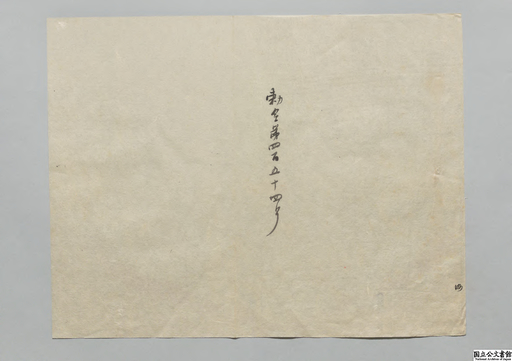 勅令第四百五十四号
国立公文書館
National Archives of Japan